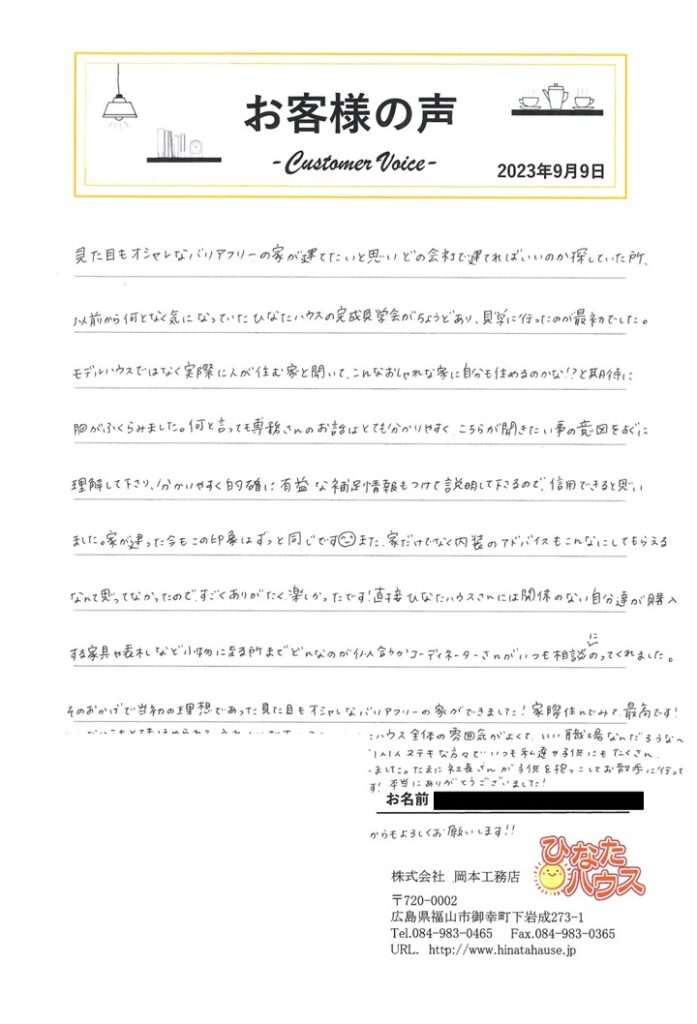 お客様の声
-Customer Voice-
2023年9月9日
見た目もオシャレなバリアフリーの家が建てたいと思いどの会社で建てればいいのか探していた所、
以前から何となく気になっていたひなたハウスの完成見学会がちょうどあり、見学に行ったのが最初でした。
モデルハウスではなく実際に人が住む家と聞いて、こんなおしゃれな家に自分も住めるのかな!?と期待に
胸がふくらみました。何と言っても専務さんのお話はとても分かりやすく、こちらが聞きたい事の意図をすぐに
理解して下さり、分かりやすく的確に有益な補足情報もつけて説明して下さるので、信用できると思い
ました。家が建った今もこの印象はずっと同じです😊また、家だけでなく内装のアドバイスもこんなにしてもらえる
なんて思ってなかったので、すごくありがたく、楽しかったです!直接ひなたハウスさんには関係のない自分達が購入
する家具や表札など小物に至る所までどんなのが似合うかコーディネーターさんがいつも相談にのってくれました。
そのおかげで当初の理想であった見た目もオシャレなバリアフリーの家ができました!実際住んでみて、最高です!
ハウス全体の雰囲気がよくて、いい職場なんだろうな〜
1人1人ステキな方々でいつも私達や子供にもたくさん
ました。たまに社長さんが子供を抱っこしてお散歩に行って
す!本当にありがとうございました!
お名前
からもよろしくお願いします!!
ひなた
ハウス
株式会社 岡本工務店
〒720-0002
広島県福山市御幸町下岩成273-1
Tel.084-983-0465 Fax.084-983-0365
URL. http://www.hinatahause.jp